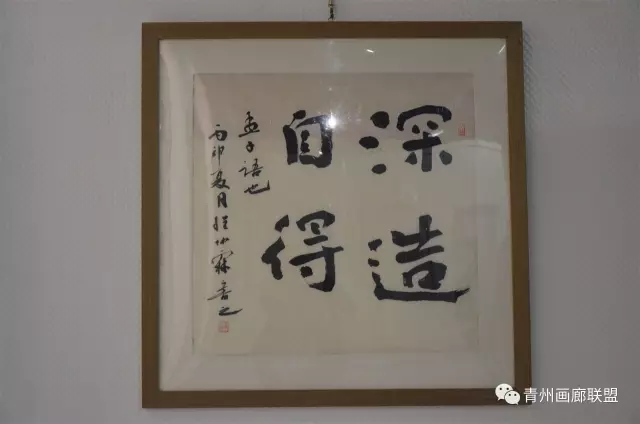 深造
自得
孟子语也
丙申夏月程仲霖书之
青州画廊联盟